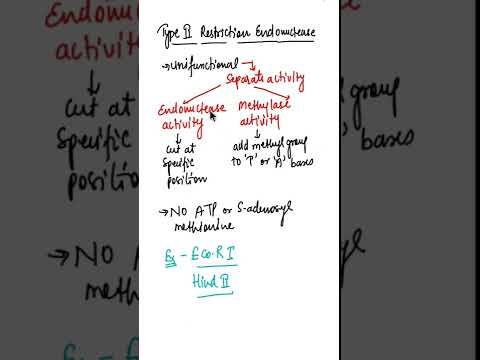 Type II Restriction Endonuclease
→ Unifunctional → Separate activity
Endonuclease activity
↓
cut at
specific
position
Methylase activity
↓
add methyl group
to 'T' or 'A' bases
→ NO ATP or S-adenosyl
methionine
Ex - ECo.R I
Hind II
activity
↓
cut at
Specific
position
→ NO A
meth
group
bases